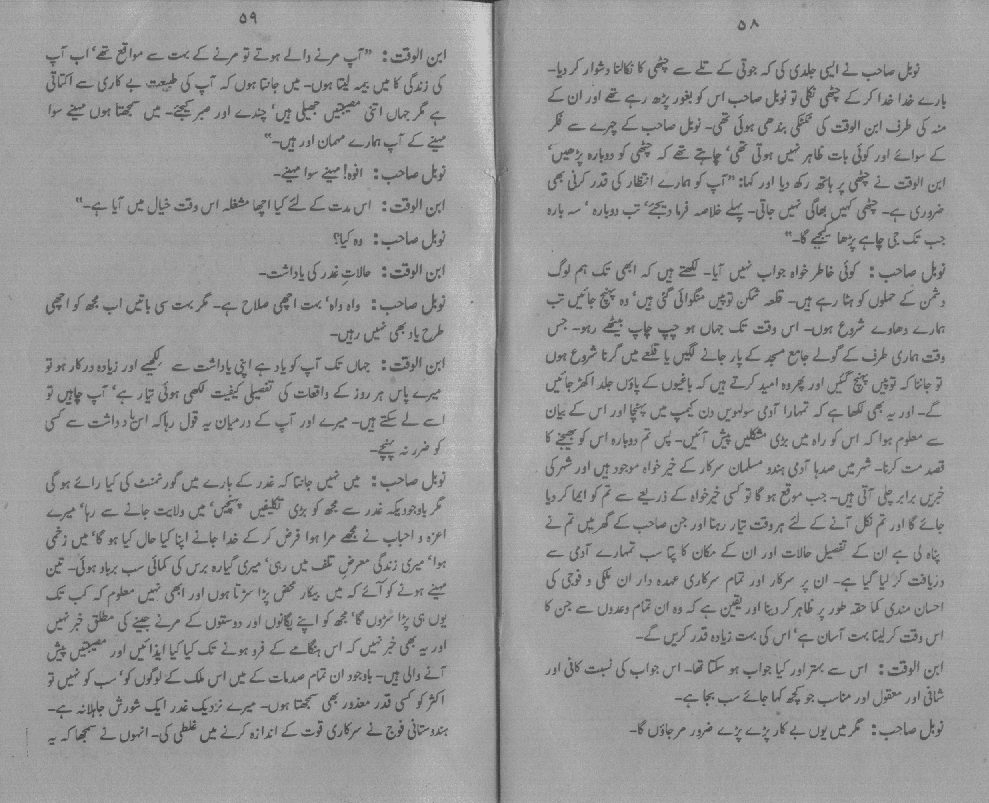 ۵۸
نوبل صاحب نے ایسی جلدی کی کہ جوتی کے تلے سے چٹھی کا نکالنا دشوار کر دیا۔
بارے خدا خدا کر کے چٹھی نکلی تو نوبل صاحب اس کو بغور پڑھ رہے تھے اور ان کے
منہ کی طرف ابن الوقت کی ٹکٹکی بندھی ہوئی تھی۔ نوبل صاحب کے چہرے سے فکر
کے سوائے اور کوئی بات ظاہر نہیں ہوتی تھی‘ چاہتے تھے کہ چٹھی کو دوبارہ پڑھیں‘
ابن الوقت نے چٹھی پر ہاتھ رکھ دیا اور کہا: ”آپ کو ہمارے انتظار کی قدر کرنی بھی
ضروری ہے۔ چٹھی کہیں بھاگی نہیں جاتی۔ پہلے خلاصہ فرما دیجئے‘ تب دوبارہ ‘ سہ بارہ
جب تک جی چاہے پڑھا کیجئے گا۔“
نوبل صاحب: کوئی خاطر خواہ جواب نہیں آیا۔ لکھتے ہیں کہ ابھی تک ہم لوگ
دشمن کے حملوں کو ہٹا رہے ہیں۔ قلعہ شکن توپیں منگوائی گئی ہیں‘ وہ پہنچ جائیں تب
ہمارے دھاوے شروع ہوں۔ اس وقت تک جہاں ہو چپ چاپ بیٹھے رہو۔ جس
وقت ہماری طرف کے گولے جامع مسجد کے پار جانے لگیں یا قلعے میں گرنا شروع ہوں
تو جاننا کہ توپیں پہنچ گئیں اور پھر وہ امید کرتے ہیں کہ باغیوں کے پاؤں جلد اکھڑ جائیں
گے۔ اور یہ بھی لکھا ہے کہ تمہارا آدمی سولہویں دن کیمپ میں پہنچا اور اس کے بیان
سے معلوم ہوا کہ اس کو راہ میں بڑی مشکلیں پیش آئیں۔ پس تم دوبارہ اس کو بھیجنے کا
قصد مت کرنا۔ شہر میں صدہا آدمی ہندو مسلمان سرکار کے خیر خواہ موجود ہیں اور شہر کی
خبریں برابر چلی آتی ہیں۔ جب موقع ہو گا تو کسی خیرخواہ کے ذریعے سے تم کو ایما کر دیا
جائے گا اور تم نکل آنے کے لئے ہر وقت تیار رہنا اور جن صاحب کے گھر میں تم نے
پناہ لی ہے ان کے تفصیل حالات اور ان کے مکان کا پتا سب تمہارے آدمی سے
دریافت کر لیا گیا ہے۔ ان پر سرکار اور تمام سرکاری عہدہ دار ان ملکی و فوجی کی
احسان مندی کما حقہ طور پر ظاہر کر دینا اور یقین ہے کہ وہ ان تمام وعدوں سے جن کا
اس وقت کر لینا بہت آسان ہے‘ اس کی بہت زیادہ قدر کریں گے۔
ابن الوقت: اس سے بہتر اور کیا جواب ہو سکتا تھا۔ اس جواب کی نسبت کافی اور
شافی اور معقول اور مناسب جو کچھ کہا جائے سب بجا ہے۔
نوبل صاحب: مگر میں یوں بے کار پڑے پڑے ضرور مر جاؤں گا۔
۵۹
ابن الوقت: ”آپ مرنے والے ہوتے تو مرنے کے بہت سے مواقع تھے‘ اب آپ
کی زندگی کا میں بیمہ لیتا ہوں۔ میں جانتا ہوں کہ آپ کی طبیعت بے کاری سے اکتاتی
ہے مگر جہاں اتنی مصیبتیں جھیلی ہیں‘ چندے اور صبر کیجئے۔ میں سمجھتا ہوں مہینے سوا
مہینے کے آپ ہمارے مہمان اور ہیں۔“
نوبل صاحب: افوہ! مہینے سوا مہینے۔
ابن الوقت: اس مدت کے لئے کیا اچھا مشغلہ اس وقت خیال میں آیا ہے۔“
نوبل صاحب: وہ کیا؟
ابن الوقت: حالاتِ غدر کی یاداشت۔
نوبل صاحب: واہ واہ‘ بہت اچھی صلاح ہے۔ مگر بہت سی باتیں اب مجھ کو اچھی
طرح یاد بھی نہیں رہیں۔
ابن الوقت: جہاں تک آپ کو یاد ہے اپنی یاداشت سے لکھیے اور زیادہ درکار ہو تو
میرے پاس ہر روز کے واقعات کی تفصیلی کیفیت لکھی ہوئی تیار ہے‘ آپ چاہیں تو
اسے لے سکتے ہیں۔ میرے اور آپ کے درمیان یہ قول رہا کہ اس داشت سے کسی
کو ضرر نہ پہنچے۔
نوبل صاحب: میں نہیں جانتا کہ غدر کے بارے میں گورنمنٹ کی کیا رائے ہو گی
مگر باوجودیکہ غدر سے مجھ کو بڑی تکلیفیں پہنچیں‘ میں ولایت جانے سے رہا‘ میرے
اعزہ و احباب نے مجھے مرا ہوا فرض کر کے خدا جانے اپنا کیا حال کیا ہو گا‘ میں زخمی
ہوا‘ میری زندگی معرضِ تلف میں رہی‘ میری گیارہ برس کی کمائی سب برباد ہوئی۔ تین
مہینے ہونے کو آئے کہ میں بیکار محض پڑا سڑتا ہوں اور ابھی نہیں معلوم کہ کب تک
یوں ہی پڑا سڑوں گا‘ مجھ کو اپنے یگانوں اور دوستوں کے مرنے جینے کی مطلق خبر نہیں
اور یہ بھی خبر نہیں کہ اس ہنگامے کے فرو ہونے تک کیا کیا ایذائیں اور مصیبتیں پیش
آنے والی ہیں۔ باوجود ان تمام صدمات کے میں اس ملک کے لوگوں کو‘ سب کو نہیں تو
اکثر کو کسی قدر معذور بھی سمجھتا ہوں۔ میرے نزدیک غدر ایک شورش جاہلانہ ہے۔
ہندوستانی فوج نے سرکاری قوت کے اندازہ کرنے میں غلطی کی۔ انہوں نے سمجھا کہ یہ